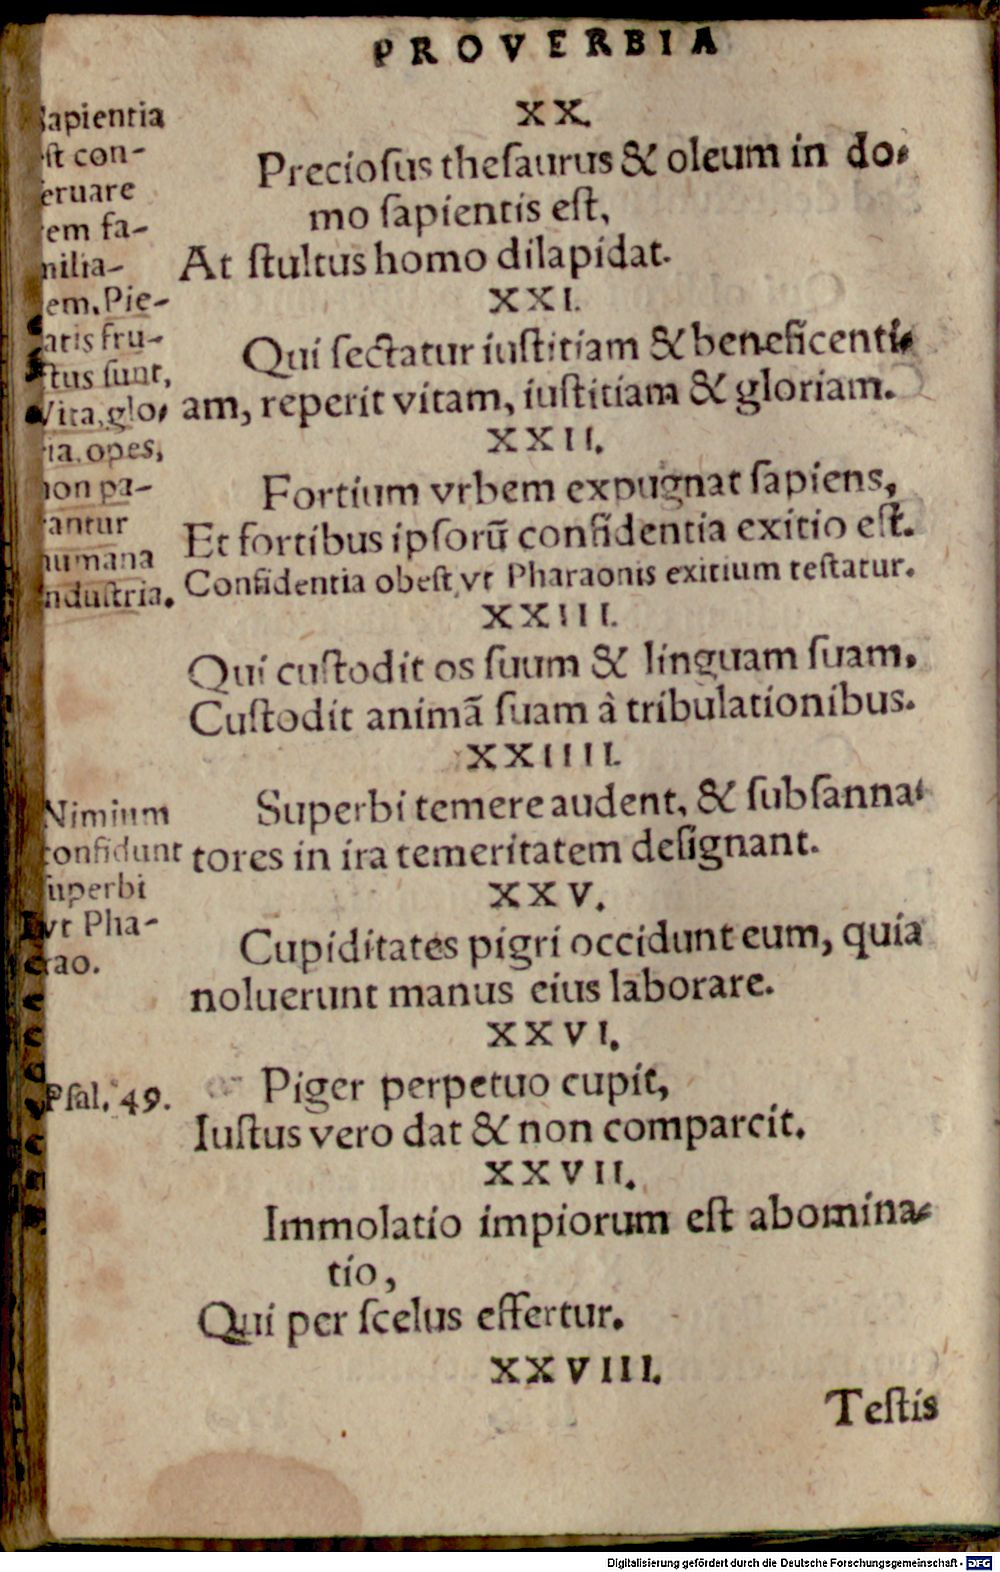 PROVERBIA
XX.
Preciosus thesaurus & oleum in do-
mo sapientis est,
At stultus homo dilapidat.
XXI.
Qui sectatur iustitiam & beneficenti-
am, reperit vitam, iustitiam & gloriam.
XXII.
Fortium vrbem expugnat sapiens,
Et fortibus ipsorũ confidentia exitio est.
Confidentia obest vt Pharaonis exitium testatur.
XXIII.
Qui custodit os suum & linguam suam,
Custodit animã suam à tribulationibus.
XXIIII.
Superbi temere audent, & subsanna-
tores in ira temeritatem designant.
XXV.
Cupiditates pigri occidunt eum, quia
noluerunt manus eius laborare.
XXVI.
Piger perpetuo cupit,
Iustus vero dat & non comparcit.
XXVII.
Immolatio impiorum est abomina-
tio,
Qui per scelus effertur.
XXVIII.
Testis
Sapientia
est con-
seruare
rem fa-
milia-
rem. Pie-
tatis fru-
ctus sunt,
Vita, glo-
ria, opes,
non pa-
rantur
humana
industria.
Nimium
confidunt
superbi
vt Pha-
rao.
Psal. 49.
Digitalisierung gefördert durch die Deutsche Forschungsgemeinschaft - DFG